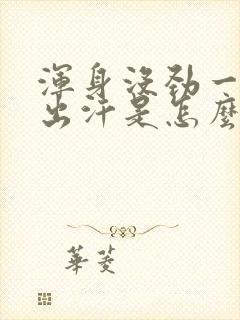 渾身沒勁一
出汗是怎麼
華菱